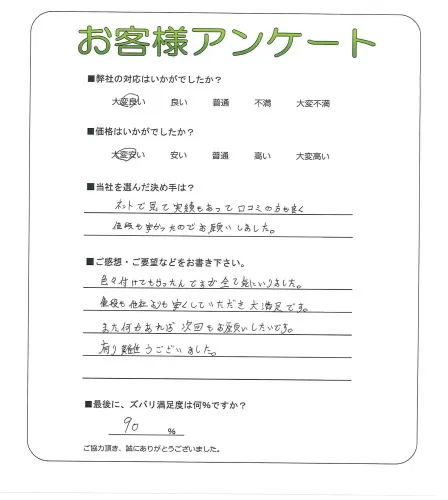 お客様アンケート
■弊社の対応はいかがでしたか?
大変良い 良い 普通 不満 大変不満
■価格はいかがでしたか?
大変安い 安い 普通 高い 大変高い
■当社を選んだ決め手は?
ネットで見て実績もあって口コミの方も良く
値段も安かったのでお願いしました。
■ご感想・ご要望などをお書き下さい。
色々付けてもらったんですが全て気にいりました。
値段も他社よりも安くしていただき大満足です。
また何かあれば次回もお願いしたいです。
有り難うございました。
■最後に、ズバリ満足度は何%ですか?
90 %
ご協力頂き、誠にありがとうございました。